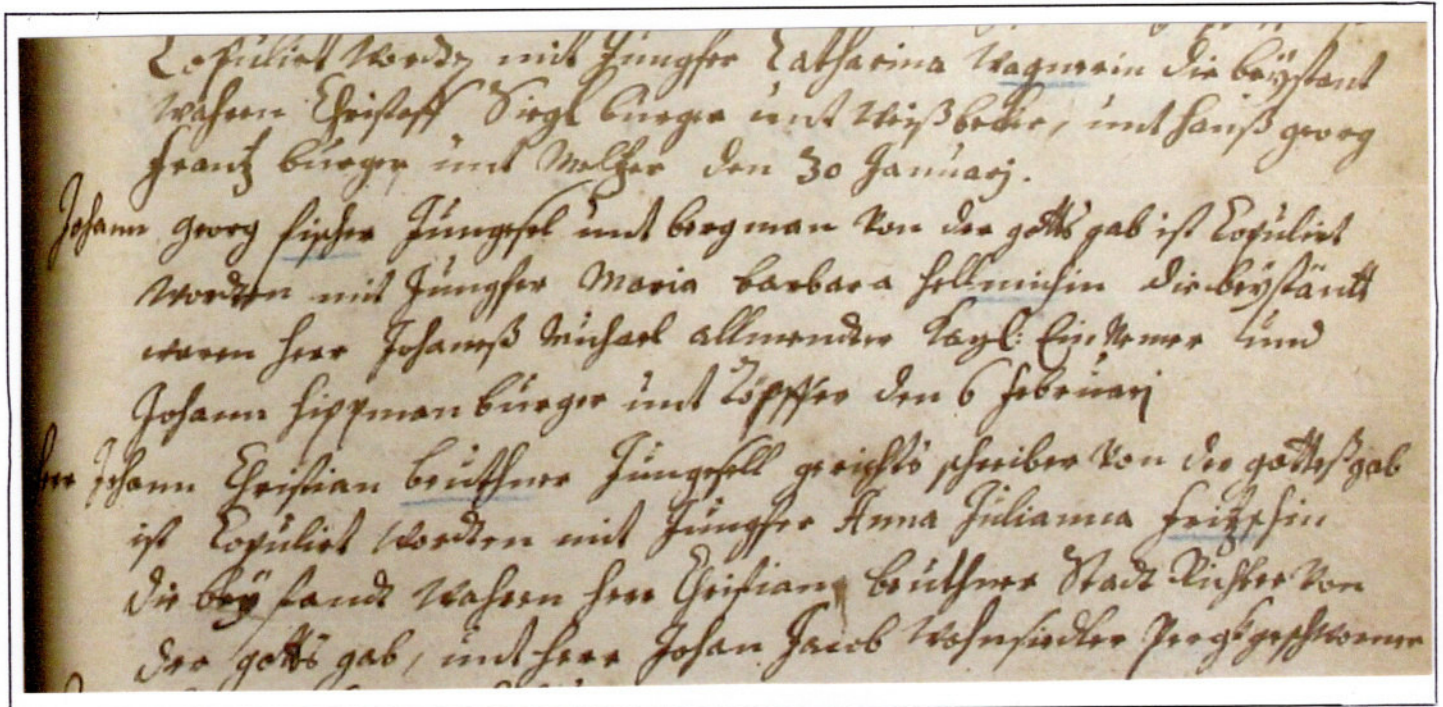 Copuliret Worden mit Jungfer Catharina Wagnerin die beÿstant
Wahren Christoff Siegl burger unt Weißbecker, unt Hanß georg
Frantz burger unt Meltzer den 30 Januarj.
Johann georg fischer Jungesel unt bergman Von der gotts gab ist Copuliret
Worden mit Jungfer Maria barbara Hellmichin die beÿständt
waren Herr Johaneß Michael allmender Kaÿl: Ein Nemer und
Johann Hippman burger unt Töpffer den 6 februarj
Herr Johann Christian beuthner Jungesell gerichts schreiber Von der gotteßgab
ist Copuliret Worden mit Jungfer Anna Julianna fritzschin
die beÿ standt Wahren Herr Christian beuthner Stadt Richter Von
der gotts gab, unt Herr Johan Jacob Wohnsiedler Pergkgeschworner